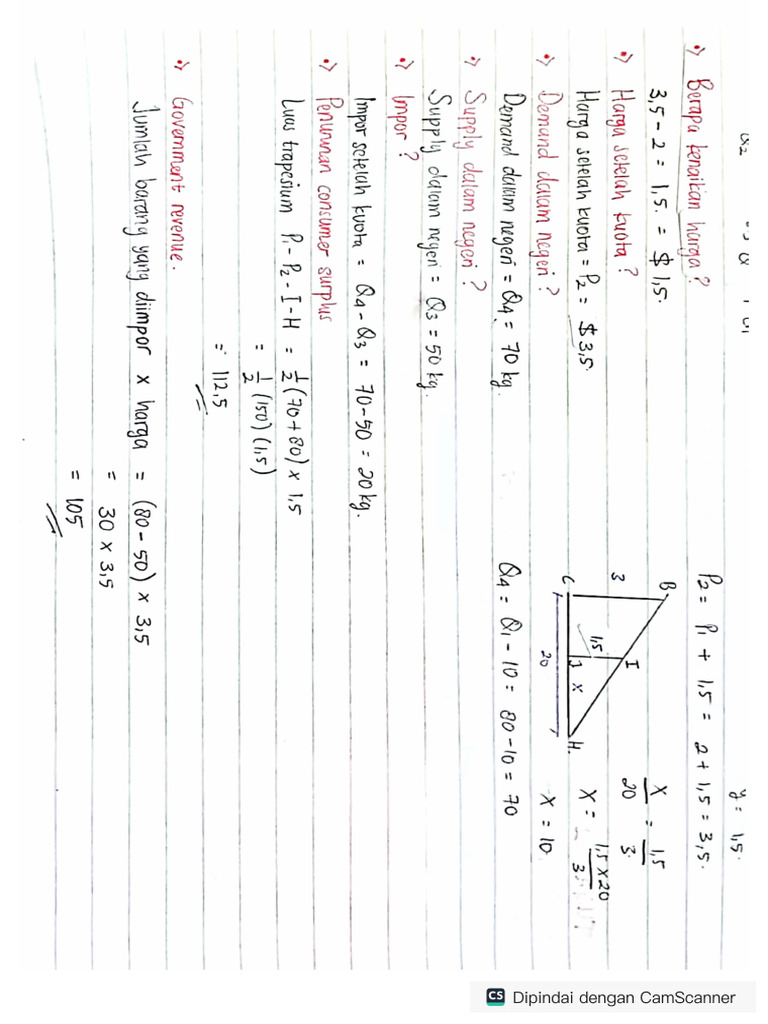 y = 1,5.
•) Berapa kenaikan harga?
P2 = P1 + 1,5 = 2 + 1,5 = 3,5.
3,5 - 2 = 1,5. = $ 1,5.
B
3
I
1,5
C
J
x
H.
20
x/20 = 1,5/3.
x = 1,5 x 20 / 3
x = 10
•) Harga setelah kuota?
Harga setelah kuota = P2 = $ 3,5.
•) Demand dalam negeri?
Demand dalam negeri = Q4 = 70 kg.
Q4 = Q1 - 10 = 80 - 10 = 70
•) Supply dalam negeri?
Supply dalam negeri = Q3 = 50 kg.
•) Impor?
Impor setelah kuota = Q4 - Q3 = 70 - 50 = 20 kg.
•) Penurunan consumer surplus
Luas trapesium P1 - P2 - I - H = 1/2 (70 + 80) x 1,5
= 1/2 (150) (1,5)
= 112,5
•) Government revenue.
Jumlah barang yang diimpor x harga = (80 - 50) x 3,5
= 30 x 3,5
= 105
CS Dipindai dengan CamScanner